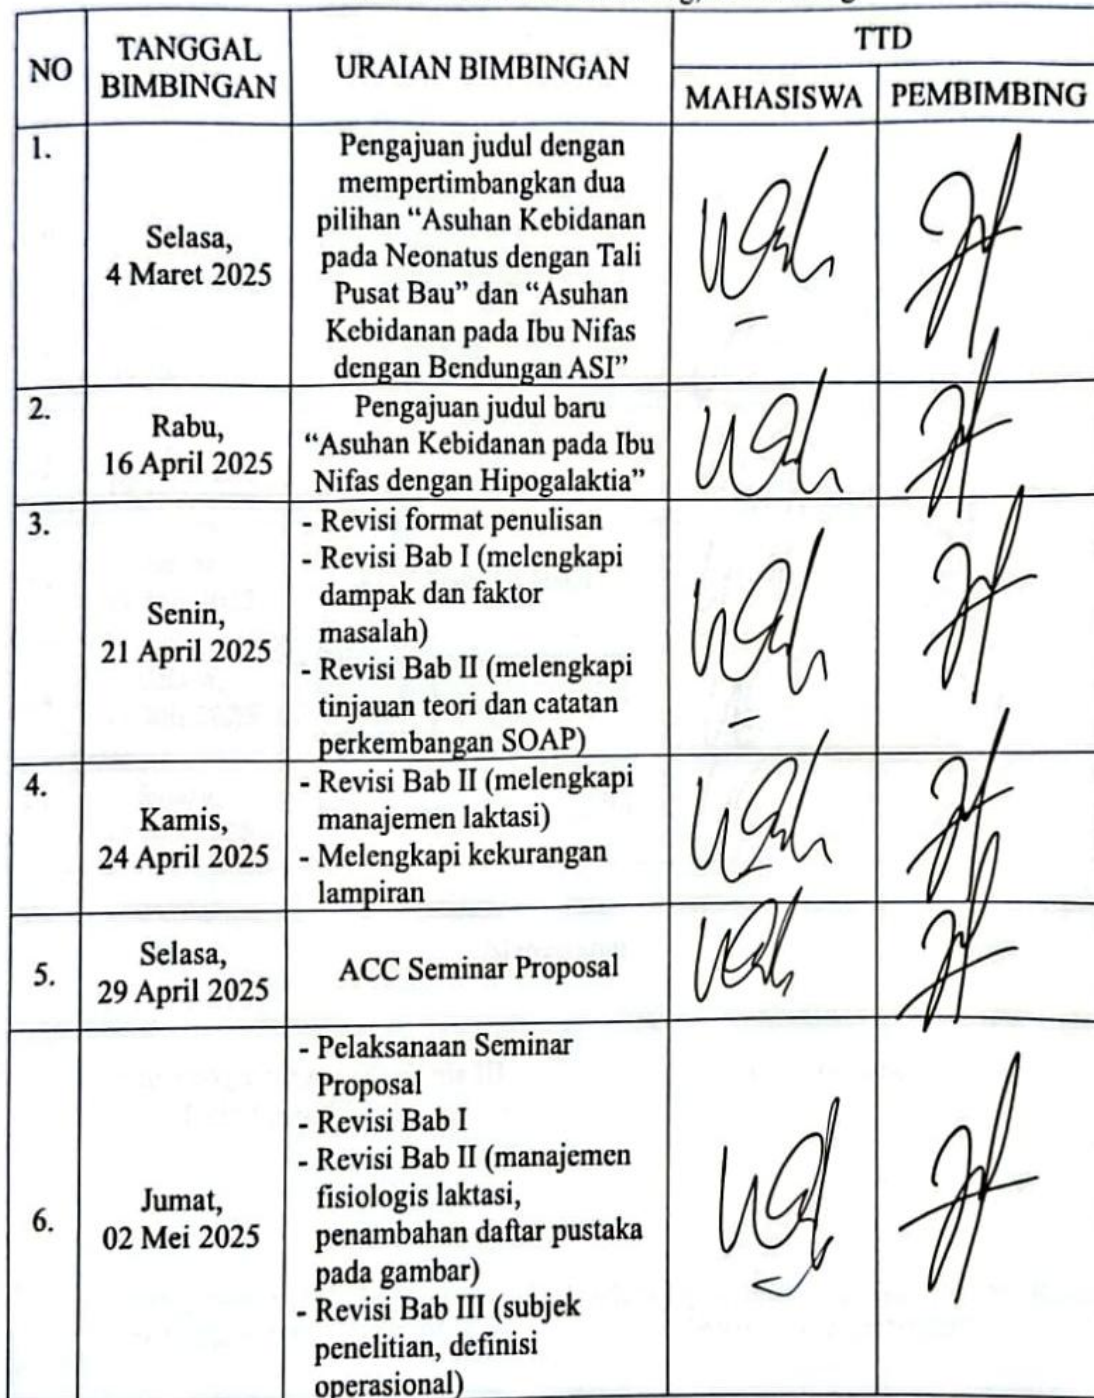 NO
TANGGAL
BIMBINGAN
URAIAN BIMBINGAN
TTD
MAHASISWA
PEMBIMBING
1.
Selasa,
4 Maret 2025
Pengajuan judul dengan
mempertimbangkan dua
pilihan “Asuhan Kebidanan
pada Neonatus dengan Tali
Pusat Bau” dan “Asuhan
Kebidanan pada Ibu Nifas
dengan Bendungan ASI”
2.
Rabu,
16 April 2025
Pengajuan judul baru
“Asuhan Kebidanan pada Ibu
Nifas dengan Hipogalaktia”
3.
Senin,
21 April 2025
- Revisi format penulisan
- Revisi Bab I (melengkapi
dampak dan faktor
masalah)
- Revisi Bab II (melengkapi
tinjauan teori dan catatan
perkembangan SOAP)
4.
Kamis,
24 April 2025
- Revisi Bab II (melengkapi
manajemen laktasi)
- Melengkapi kekurangan
lampiran
5.
Selasa,
29 April 2025
ACC Seminar Proposal
6.
Jumat,
02 Mei 2025
- Pelaksanaan Seminar
Proposal
- Revisi Bab I
- Revisi Bab II (manajemen
fisiologis laktasi,
penambahan daftar pustaka
pada gambar)
- Revisi Bab III (subjek
penelitian, definisi
operasional)